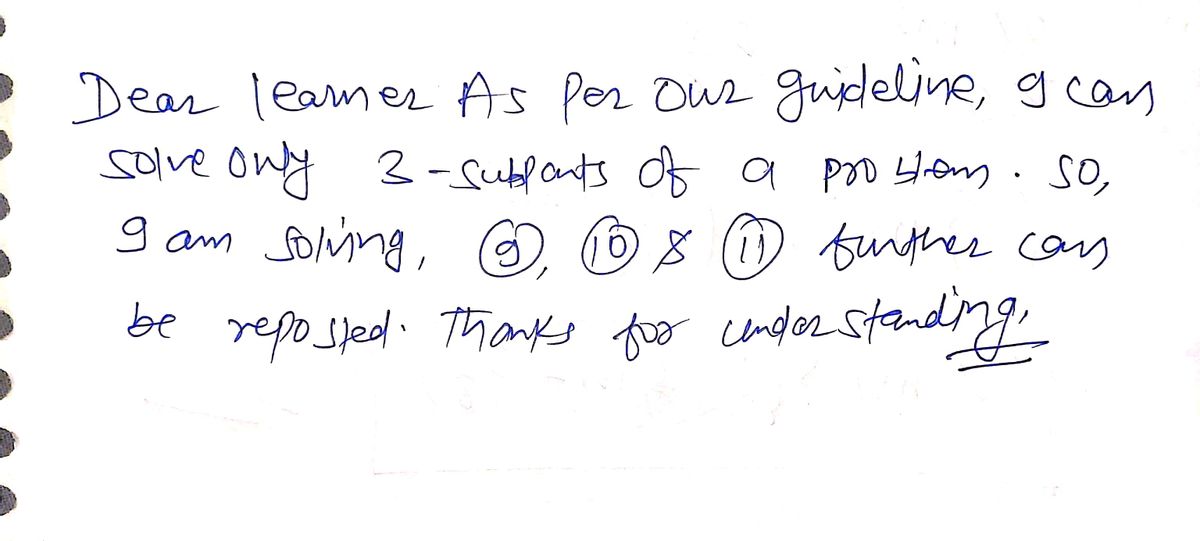 Dear learner As Per our guideline, I can
solve only 3-subparts of a problem. So,
I am solving, 9, 10 & 11 further can
be reposted. Thanks for understanding.